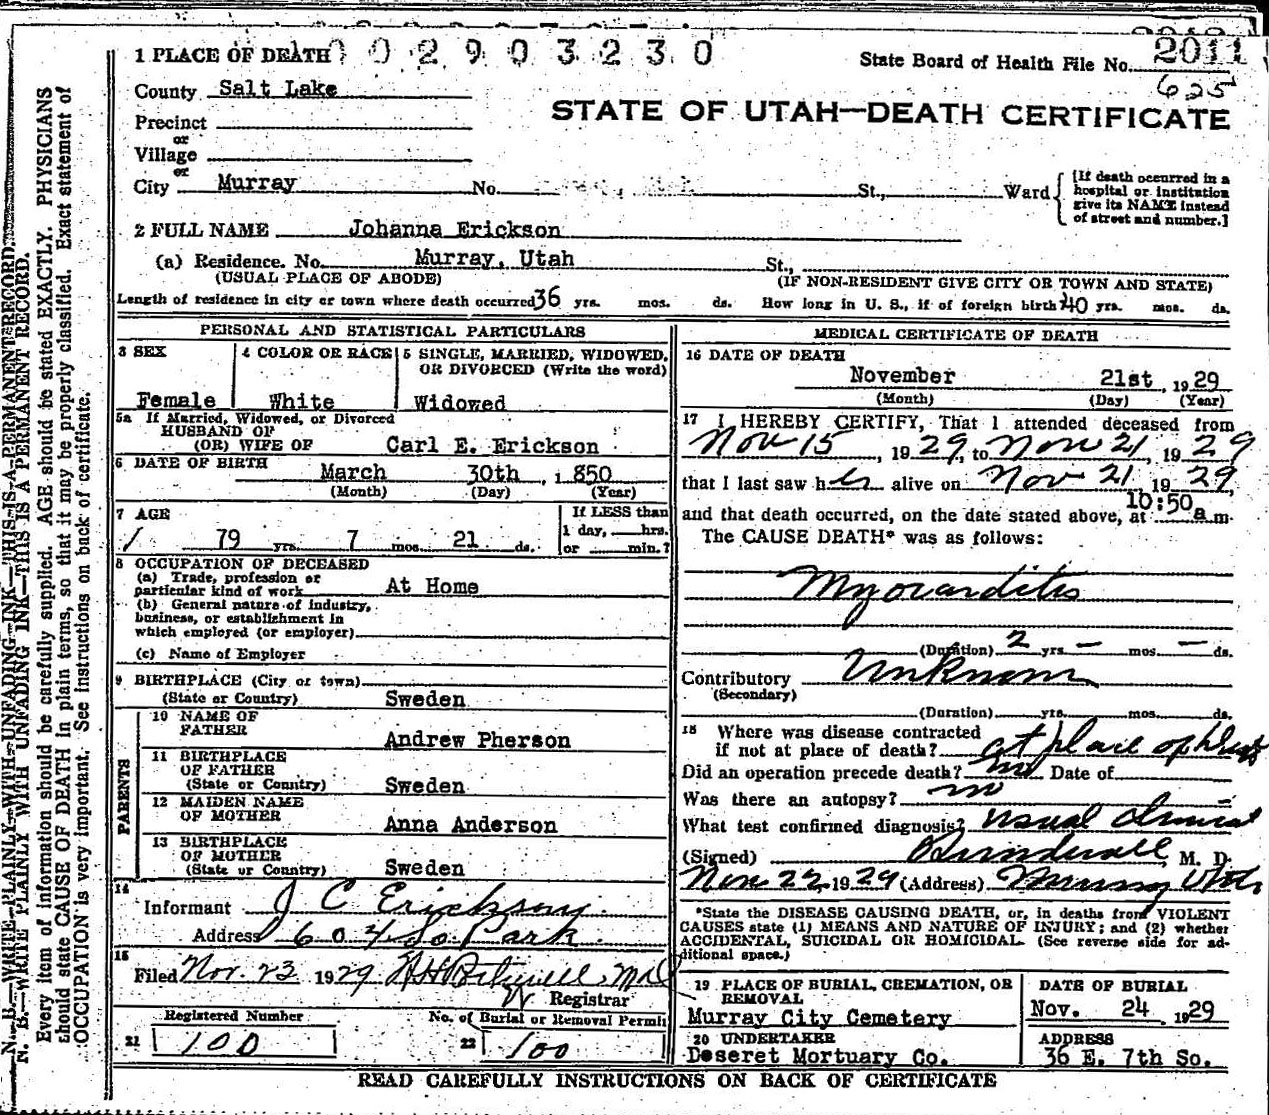 1 PLACE OF DEATH 0 0 2 9 0 3 2 3 0
State Board of Health File No. 2011
625
County Salt Lake
STATE OF UTAH—DEATH CERTIFICATE
Precinct
or
Village
or
City Murray No. St., Ward
[If death occurred in a
hospital or institution
give its NAME instead
of street and number.]
2 FULL NAME Johanna Erickson
(a) Residence. No. Murray, Utah St.,
(USUAL PLACE OF ABODE) (IF NON-RESIDENT GIVE CITY OR TOWN AND STATE)
Length of residence in city or town where death occurred 36 yrs. mos. ds. How long in U. S., if of foreign birth 40 yrs. mos. ds.
PERSONAL AND STATISTICAL PARTICULARS
3 SEX
Female
4 COLOR OR RACE
White
5 SINGLE, MARRIED, WIDOWED,
OR DIVORCED (Write the word)
Widowed
5a If Married, Widowed, or Divorced
HUSBAND OF
(OR) WIFE OF Carl E. Erickson
6 DATE OF BIRTH
March 30th, 1850
(Month) (Day) (Year)
7 AGE
79 yrs. 7 mos. 21 ds.
If LESS than
1 day, hrs.
or min.?
8 OCCUPATION OF DECEASED
(a) Trade, profession or
particular kind of work At Home
(b) General nature of industry,
business, or establishment in
which employed (or employer)
(c) Name of Employer
9 BIRTHPLACE (City or town)
(State or Country) Sweden
PARENTS
10 NAME OF
FATHER
Andrew Pherson
11 BIRTHPLACE
OF FATHER
(State or Country) Sweden
12 MAIDEN NAME
OF MOTHER
Anna Anderson
13 BIRTHPLACE
OF MOTHER
(State or Country) Sweden
14
Informant J C Erickson
Address 604 So. Park
15
Filed Nov. 23 1929 M D
Registrar
Registered Number
21 100
No. of Burial or Removal Permit
22 100
MEDICAL CERTIFICATE OF DEATH
16 DATE OF DEATH
November 21st, 1929
(Month) (Day) (Year)
17 I HEREBY CERTIFY, That I attended deceased from
Nov 15, 1929, to Nov 21, 1929
that I last saw her alive on Nov 21, 1929,
and that death occurred, on the date stated above, at 10:50 a m.
The CAUSE DEATH* was as follows:
Myocarditis
(Duration) 2 yrs. — mos. — ds.
Contributory Unknown
(Secondary)
(Duration) yrs. mos. ds.
18 Where was disease contracted
if not at place of death? at place of death
Did an operation precede death? no Date of
Was there an autopsy? no –
What test confirmed diagnosis? usual clinical
(Signed) M. D.
Nov. 22, 1929 (Address) Murray Utah
*State the DISEASE CAUSING DEATH, or, in deaths from VIOLENT
CAUSES state (1) MEANS AND NATURE OF INJURY; and (2) whether
ACCIDENTAL, SUICIDAL OR HOMICIDAL. (See reverse side for ad-
ditional space.)
19 PLACE OF BURIAL, CREMATION, OR
REMOVAL
Murray City Cemetery
DATE OF BURIAL
Nov. 24 1929
20 UNDERTAKER
Deseret Mortuary Co.
ADDRESS
36 E. 7th So.
READ CAREFULLY INSTRUCTIONS ON BACK OF CERTIFICATE
N. B.—WRITE PLAINLY WITH UNFADING INK—THIS IS A PERMANENT RECORD.
N. B.—WRITE PLAINLY WITH UNFADING INK—THIS IS A PERMANENT RECORD.
Every item of information should be carefully supplied. AGE should be stated EXACTLY. PHYSICIANS
should state CAUSE OF DEATH in plain terms, so that it may be properly classified. Exact statement of
OCCUPATION is very important. See instructions on back of certificate.